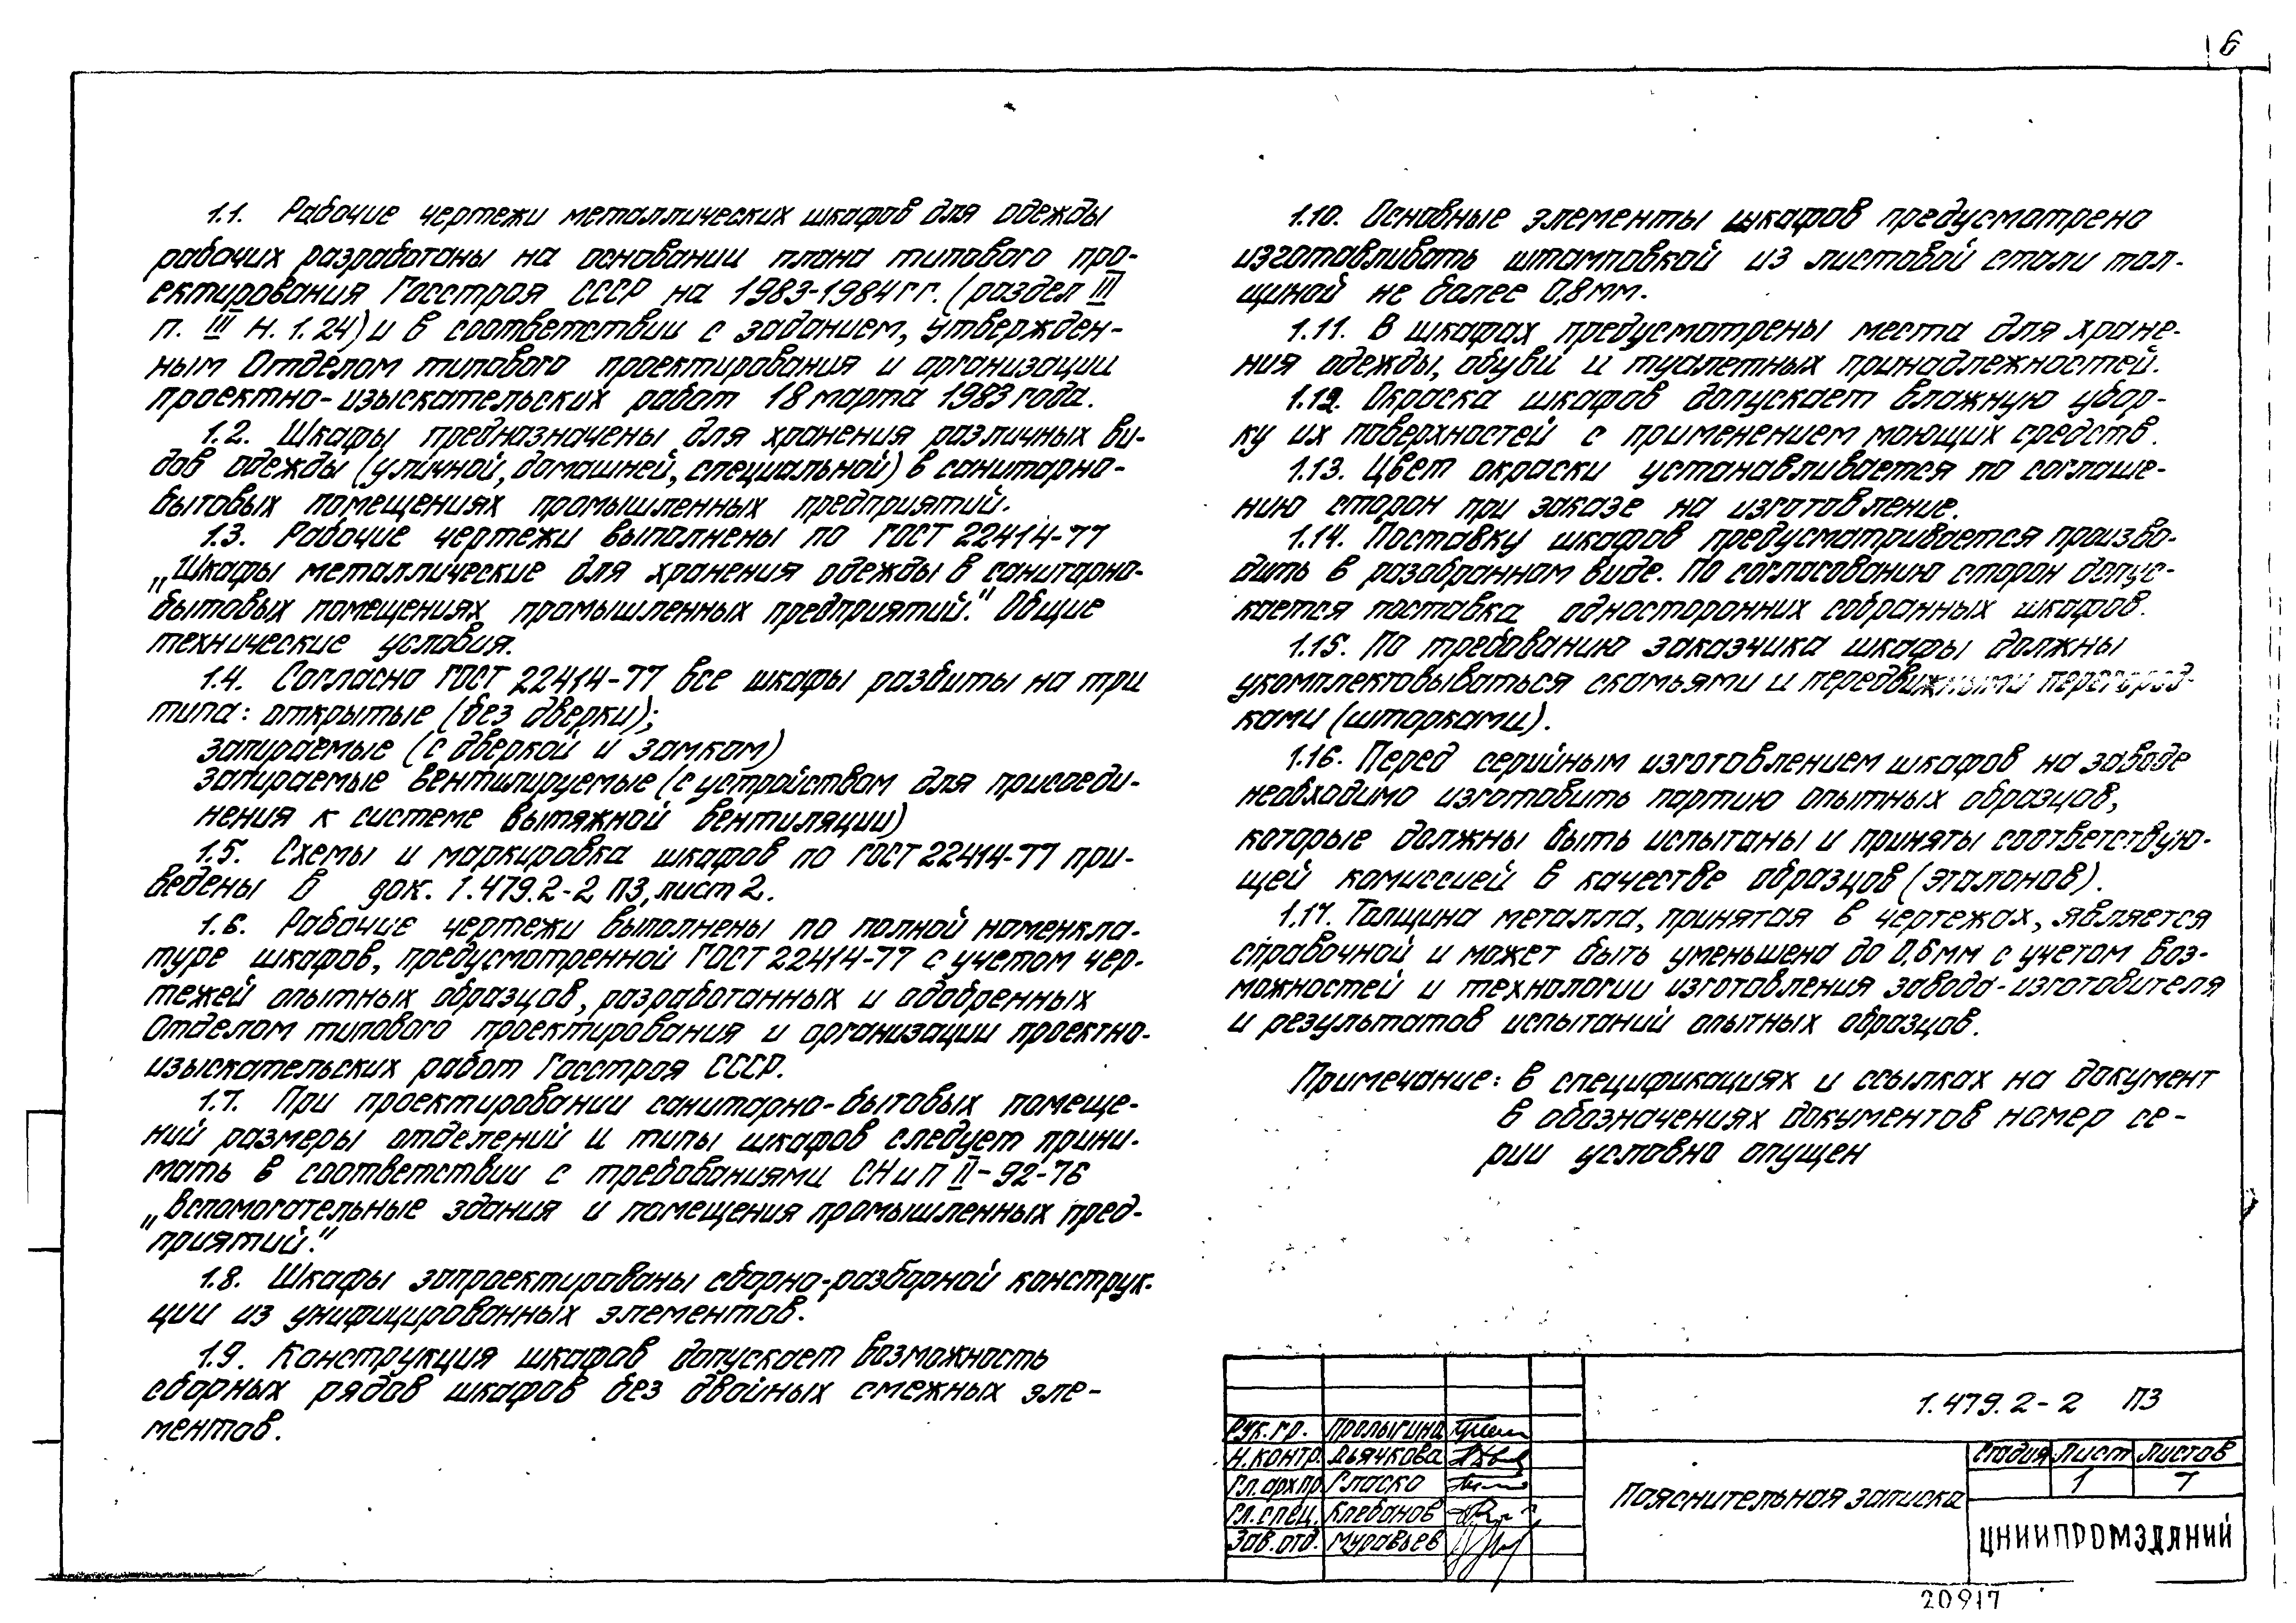 6
1.1. Рабочие чертежи металлических шкафов для одежды
рабочих разработаны на основании плана типового про-
ектирования Госстроя СССР на 1983-1984гг. (раздел III
п. III Н. 1.24) и в соответствии с заданием, утвержден-
ным Отделом типового проектирования и организации
проектно-изыскательских работ 18 марта 1983 года.
1.2. Шкафы предназначены для хранения различных ви-
дов одежды (уличной, домашней, специальной) в санитарно-
бытовых помещениях промышленных предприятий.
1.3. Рабочие чертежи выполнены по ГОСТ 22414-77
„Шкафы металлические для хранения одежды в санитарно-
бытовых помещениях промышленных предприятий." Общие
технические условия.
1.4. Согласно ГОСТ 22414-77 все шкафы разбиты на три
типа: открытые (без дверки);
запираемые (с дверкой и замком)
запираемые вентилируемые (с устройством для присоеди-
нения к системе вытяжной вентиляции)
1.5. Схемы и маркировка шкафов по ГОСТ 22414-77 при-
ведены в док. 1.479.2-2 ПЗ, лист 2.
1.6. Рабочие чертежи выполнены по полной номенкла-
туре шкафов, предусмотренной ГОСТ 22414-77 с учетом чер-
тежей опытных образцов, разработанных и одобренных
Отделом типового проектирования и организации проектно-
изыскательских работ Госстроя СССР.
1.7. При проектировании санитарно-бытовых помеще-
ний размеры отделений и типы шкафов следует прини-
мать в соответствии с требованиями СНиП II-92-76
„Вспомогательные здания и помещения промышленных пред-
приятий."
1.8. Шкафы запроектированы сборно-разборной конструк-
ции из унифицированных элементов.
1.9. Конструкция шкафов допускает возможность
сборных рядов шкафов без двойных смежных эле-
ментов.
1.10. Основные элементы шкафов предусмотрено
изготавливать штамповкой из листовой стали тол-
щиной не более 0,8мм.
1.11. В шкафах предусмотрены места для хране-
ния одежды, обуви и туалетных принадлежностей.
1.12. Окраска шкафов допускает влажную убор-
ку их поверхностей с применением моющих средств.
1.13. Цвет окраски устанавливается по соглаше-
нию сторон при заказе на изготовление.
1.14. Поставку шкафов предусматривается произво-
дить в разобранном виде. По согласованию сторон допус-
кается поставка односторонних собранных шкафов.
1.15. По требованию заказчика шкафы должны
укомплектовываться скамьями и передвижными перегород-
ками (шторками).
1.16. Перед серийным изготовлением шкафов на заводе
необходимо изготовить партию опытных образцов,
которые должны быть испытаны и приняты соответствую-
щей комиссией в качестве образцов (эталонов).
1.17. Толщина металла, принятая в чертежах, является
справочной и может быть уменьшена до 0,6мм с учетом воз-
можностей и технологии изготовления завода-изготовителя
и результатов испытаний опытных образцов.
Примечание: в спецификациях и ссылках на документ
в обозначениях документов номер се-
рии условно опущен
1.479.2-2 ПЗ
Рук.гр. Пролыгина
Н.контр. Дьячкова
Гл.арх.пр. Гласко
Гл.спец. Клебанов
Зав.отд. Муравьев
Пояснительная записка
Стадия Лист Листов
1 7
ЦНИИПРОМЗДАНИЙ
20917